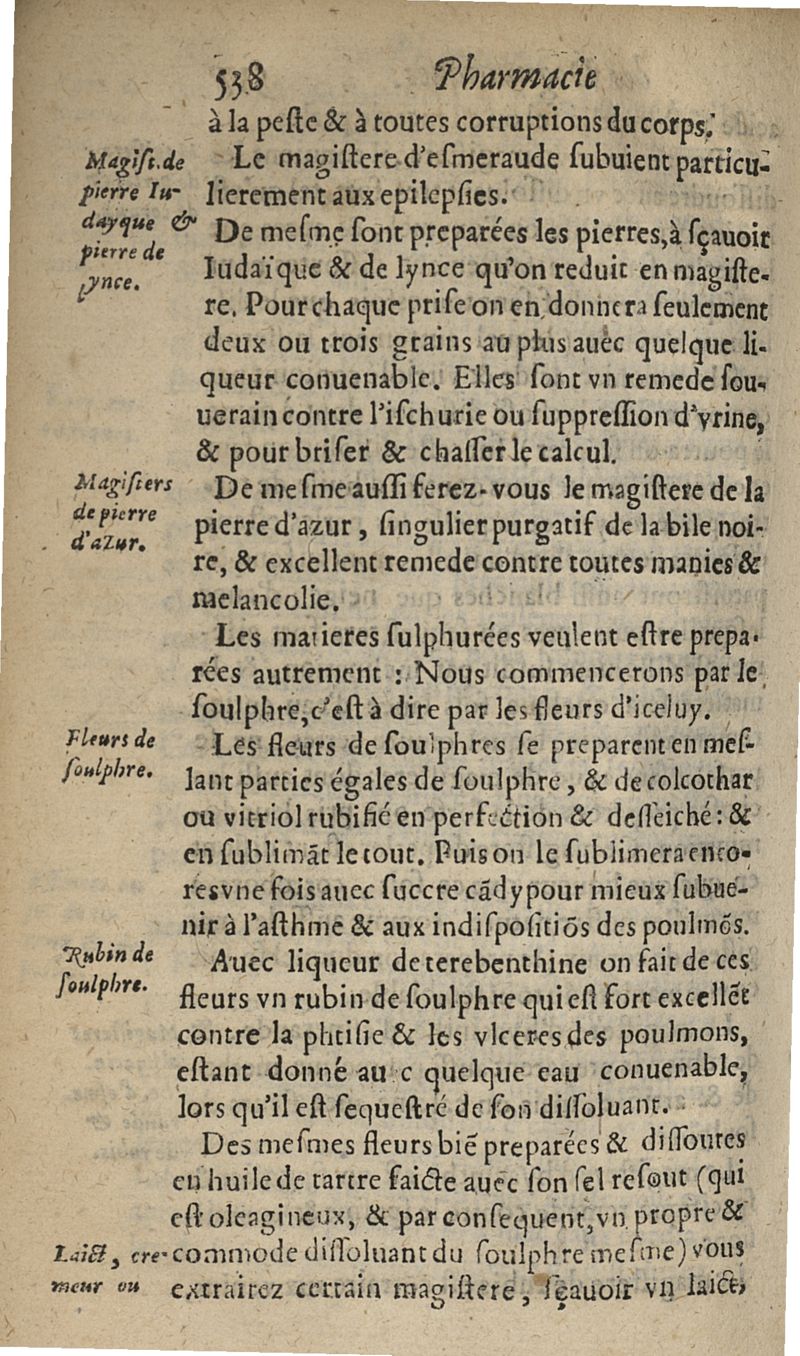 538 Pharmacie
à la peſte & à toutes corruptions du corps.
Magiſt. de
pierre Iu-
dayque &
pierre de
lynce.
Le magiſtere d'eſmeraude ſubuient particu-
lierement aux epilepſies.
De meſme ſont preparées les pierres, à ſçauoir
Iudaïque & de lynce qu'on reduit en magiſte-
re. Pour chaque priſe on en donnera ſeulement
deux ou trois grains au plus auec quelque li-
queur conuenable. Elles ſont vn remede ſou-
uerain contre l'iſchurie ou ſuppreſſion d'vrine,
& pour briſer & chaſſer le calcul.
Magiſters
de pierre
d'azur.
De meſme auſſi ferez-vous le magiſtere de la
pierre d'azur, ſingulier purgatif de la bile noi-
re, & excellent remede contre toutes manies &
melancolie.
Les matieres ſulphurées veulent eſtre prepa-
rées autrement : Nous commencerons par le
ſoulphre, c'eſt à dire par les fleurs d'iceluy.
Fleurs de
ſoulphre.
Les fleurs de ſoulphres ſe preparent en meſ-
lant parties égales de ſoulphre, & de colcothar
ou vitriol rubifié en perfection & deſſeiché : &
en ſublimãt le tout. Puis on le ſublimera enco-
res vne fois auec ſuccre cãdy pour mieux ſubue-
nir à l'aſthme & aux indiſpoſitiõs des poulmõs.
Rubin de
ſoulphre.
Auec liqueur de terebenthine on fait de ces
fleurs vn rubin de ſoulphre qui eſt fort excellẽt
contre la phtiſie & les vlceres des poulmons,
eſtant donné auec quelque eau conuenable,
lors qu'il eſt ſequeſtré de ſon diſſoluant.
Des meſmes fleurs biẽ preparées & diſſoutes
en huile de tartre faicte auec ſon ſel reſout (qui
eſt oleagineux, & par conſequent, vn propre &
Laict, cre-
meur ou
commode diſſoluant du ſoulphre meſme) vous
extrairez certain magiſtere, ſçauoir vn laict,